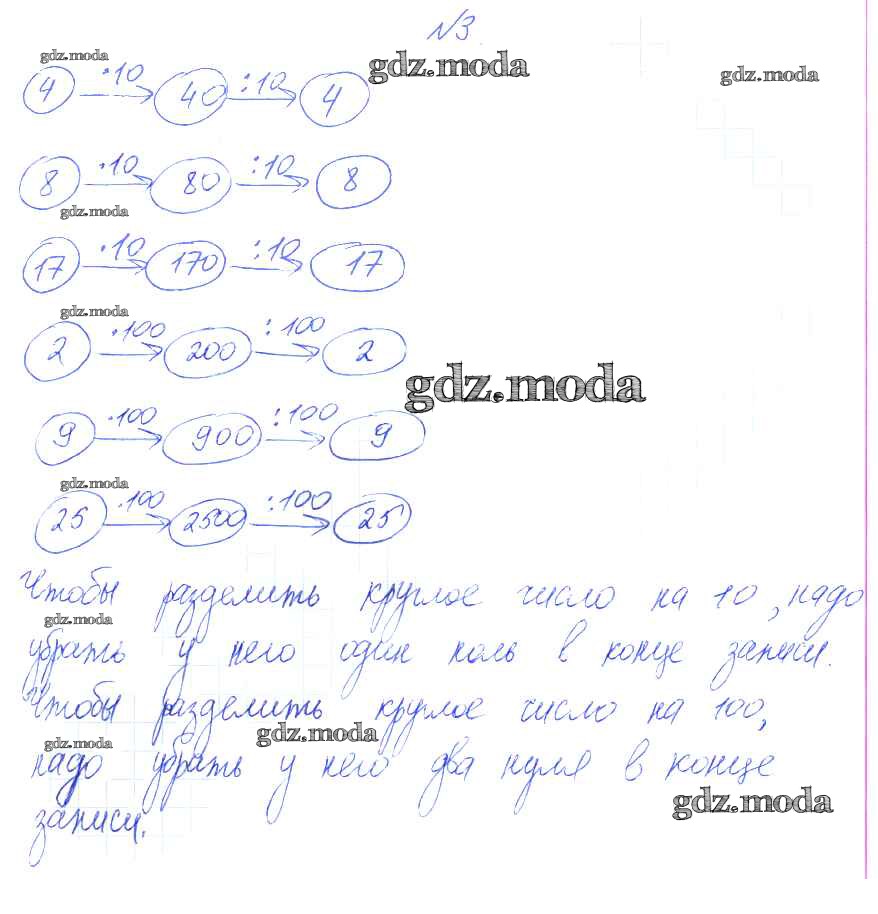 №3
gdz.moda
gdz.moda
gdz.moda
4 ·10 40 :10 4
8 ·10 80 :10 8
gdz.moda
17 ·10 170 :10 17
gdz.moda
2 ·100 200 :100 2
gdz.moda
9 ·100 900 :100 9
gdz.moda
25 ·100 2500 :100 25
Чтобы разделить круглое число на 10, надо
gdz.moda
убрать у него один ноль в конце записи.
Чтобы разделить круглое число на 100,
gdz.moda
gdz.moda
надо убрать у него два нуля в конце
gdz.moda
записи.